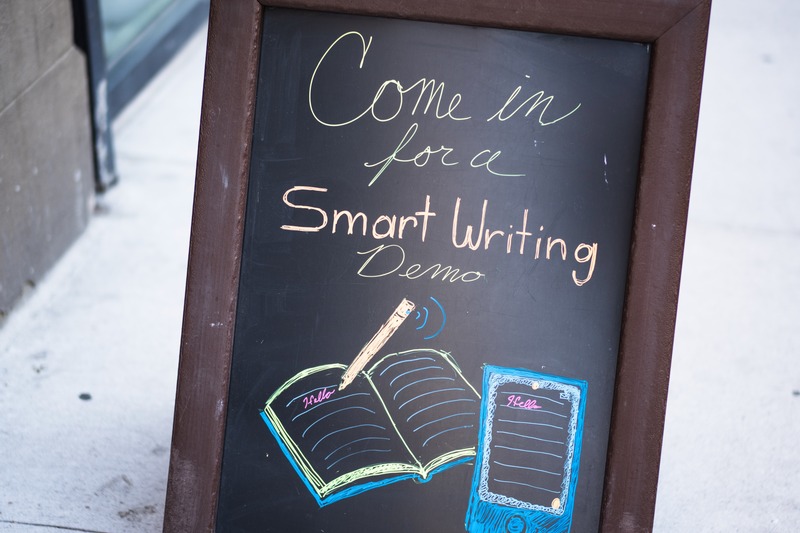 Come in
for a
Smart Writing
Demo
Hello
Hello